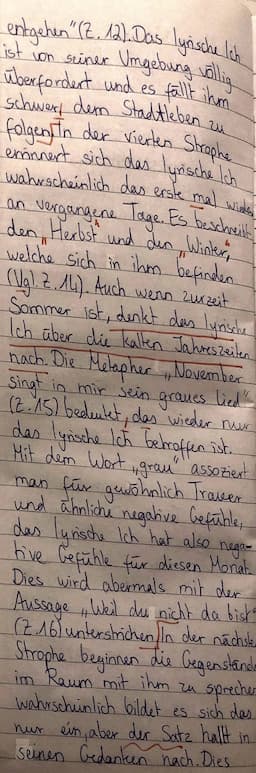 entgehen" (Z. 12). Das lyrische Ich
ist von seiner Umgebung völlig
überfordert und es fällt ihm
schwer, dem Stadtleben zu
folgen. In der vierten Strophe
erinnert sich das lyrische Ich
wahrscheinlich das erste mal wieder
an vergangene Tage. Es beschreibt
den "Herbst" und den "Winter",
welche sich in ihm befinden
(Vgl. Z. 14). Auch wenn zurzeit
Sommer ist, denkt das lyrische
Ich über die kalten Jahreszeiten
nach. Die Metapher „November
singt in mir sein graues Lied"
(Z. 15) bedeutet, das wieder nur
das lyrische Ich betroffen ist.
Mit dem Wort „grau" assoziert
man für gewöhnlich Trauer
und ähnliche negative Gefühle,
das lyrische Ich hat also nega-
tive Gefühle für diesen Monat.
Dies wird abermals mit der
Aussage „Weil du nicht da bist"
(Z. 16) unterstrichen. In der nächsten
Strophe beginnen die Gegenstände
im Raum mit ihm zu sprechen
wahrscheinlich bildet es sich das
nur ein, aber der Satz hallt in
seinen Gedanken nach. Dies